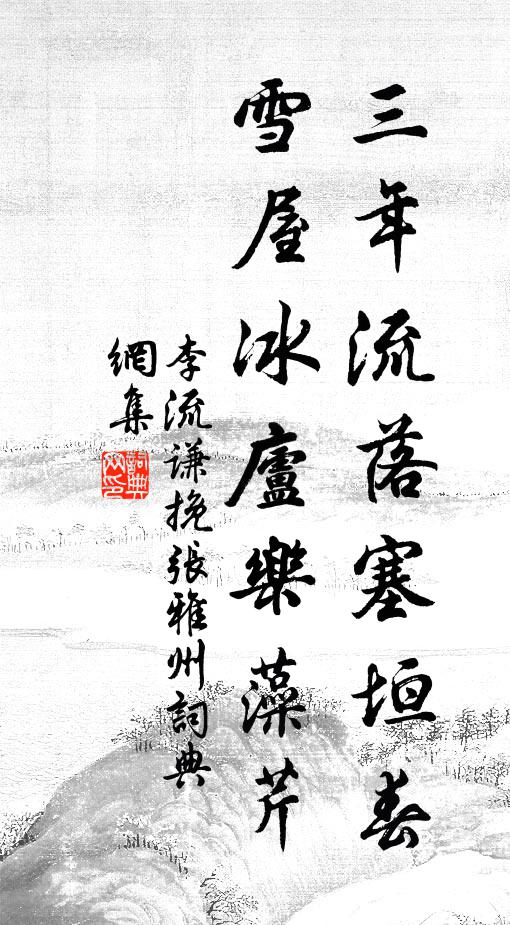 三年流落塞垣春
雪屋冰廬樂藻芹
李流謙挽張雅州詞典
網集
詞典網印